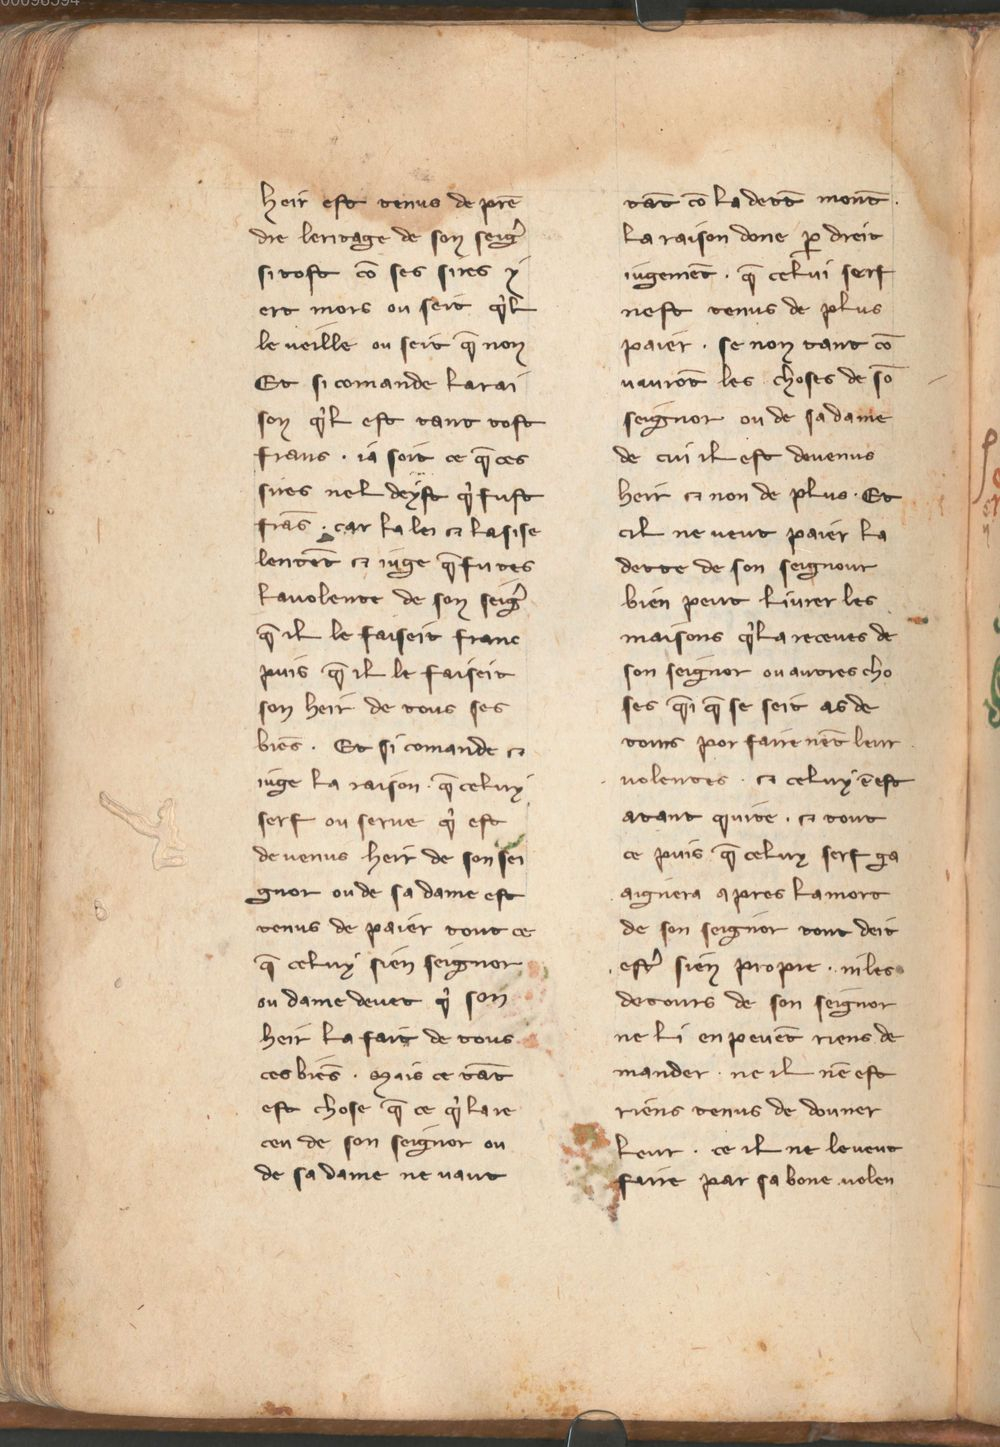 heir est tenus de prē
dre leritage de son seigr̉
si tost cō ses sires y
ert mors ou seit q̉l
le ueille ou seit q̄ non
Et si comande la rai
son q̉l est tant tost
frans . ia soit ce q̄ ces
sires nel deyst q̉ fust
frās . car la lei ⁊ lasise
lentēt ⁊ iuge q̄ fu tes
la uolente de son seigr̉
q̄ il le faiseit franc
puis q̄ il le faiseit
son heir de tous ses
biēs . Et si comande ⁊
iuge la raison . q̄ celuy
serf ou serue q̉ est
deuenus heir de son sei
gnor ou de sa dame est
tenus de paier tout ce
q̄ celuy sien seignor
ou dame deuet q̉ son
heir la fait de tous
ces biēs . Mais ce tāt
est chose q̄ ce q̉l a re
ceu de son seignor ou
de sa dame ne uaut
tāt cō la dett̄ mont̄ .
La raison done ꝑ dreit
iugemēt . q̄ celui serf
nest tenus de plus
paier . se non tant cō
uaurōt les choses de sō
seignor ou de sa dame
de cui il est deuenus
heir ⁊ non de plus . Et
cil ne ueut paier la
dette de son seignour
bien peut liurer les
maisons q̉l a receues de
son seignor ou autres cho
ses q̄i q̄ se seit as de
tours por faire nēt leur
uolentes . ⁊ celuy ē est
atant quite . ⁊ tout
ce puis q̄ celuy serf ga
aignera apres la mort
de son seignor tout deit
estr̉ sien propre . ni les
detours de son seignor
ne li en peuēt riens de
mander . ne il nē est
riens tenus de douner
leur . ce il ne le ueut
faire par sa bone uolen